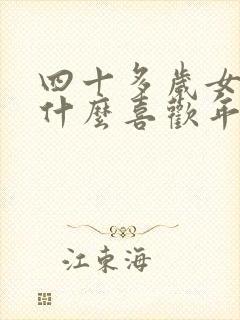 四十多歲女
什麼喜歡年
江東海